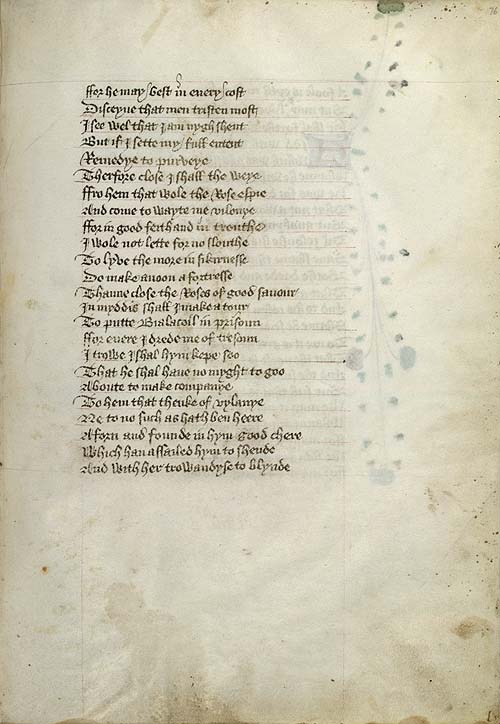 76
ffor he may best in euery cost
Disceyue that men tristen most
I see wel that I am nygh shent
But if I sette my full entent
Remedye to purveye
Therfore close I shall the weye
ffro hem that wole the Rose espie
And come to wayte me vilonye
ffor in good feith and in trouthe
I wole not lette for no slouthe
To lyve the more in sikirnesse
Do make anoon a fortresse
Thanne close the Roses of good savour
In myddis shall I make a tour
To putte Bialacoil in prisoun
ffor euere I drede me of tresoun
I trowe I shal hym kepe soo
That he shal haue no myght to goo
Aboute to make companye
To hem that thenke of vylanye
Ne to no such as hath ben heere
Aforn and founde in hym good chere
Which han assailed hym to shende
And with her trowandyse to blynde